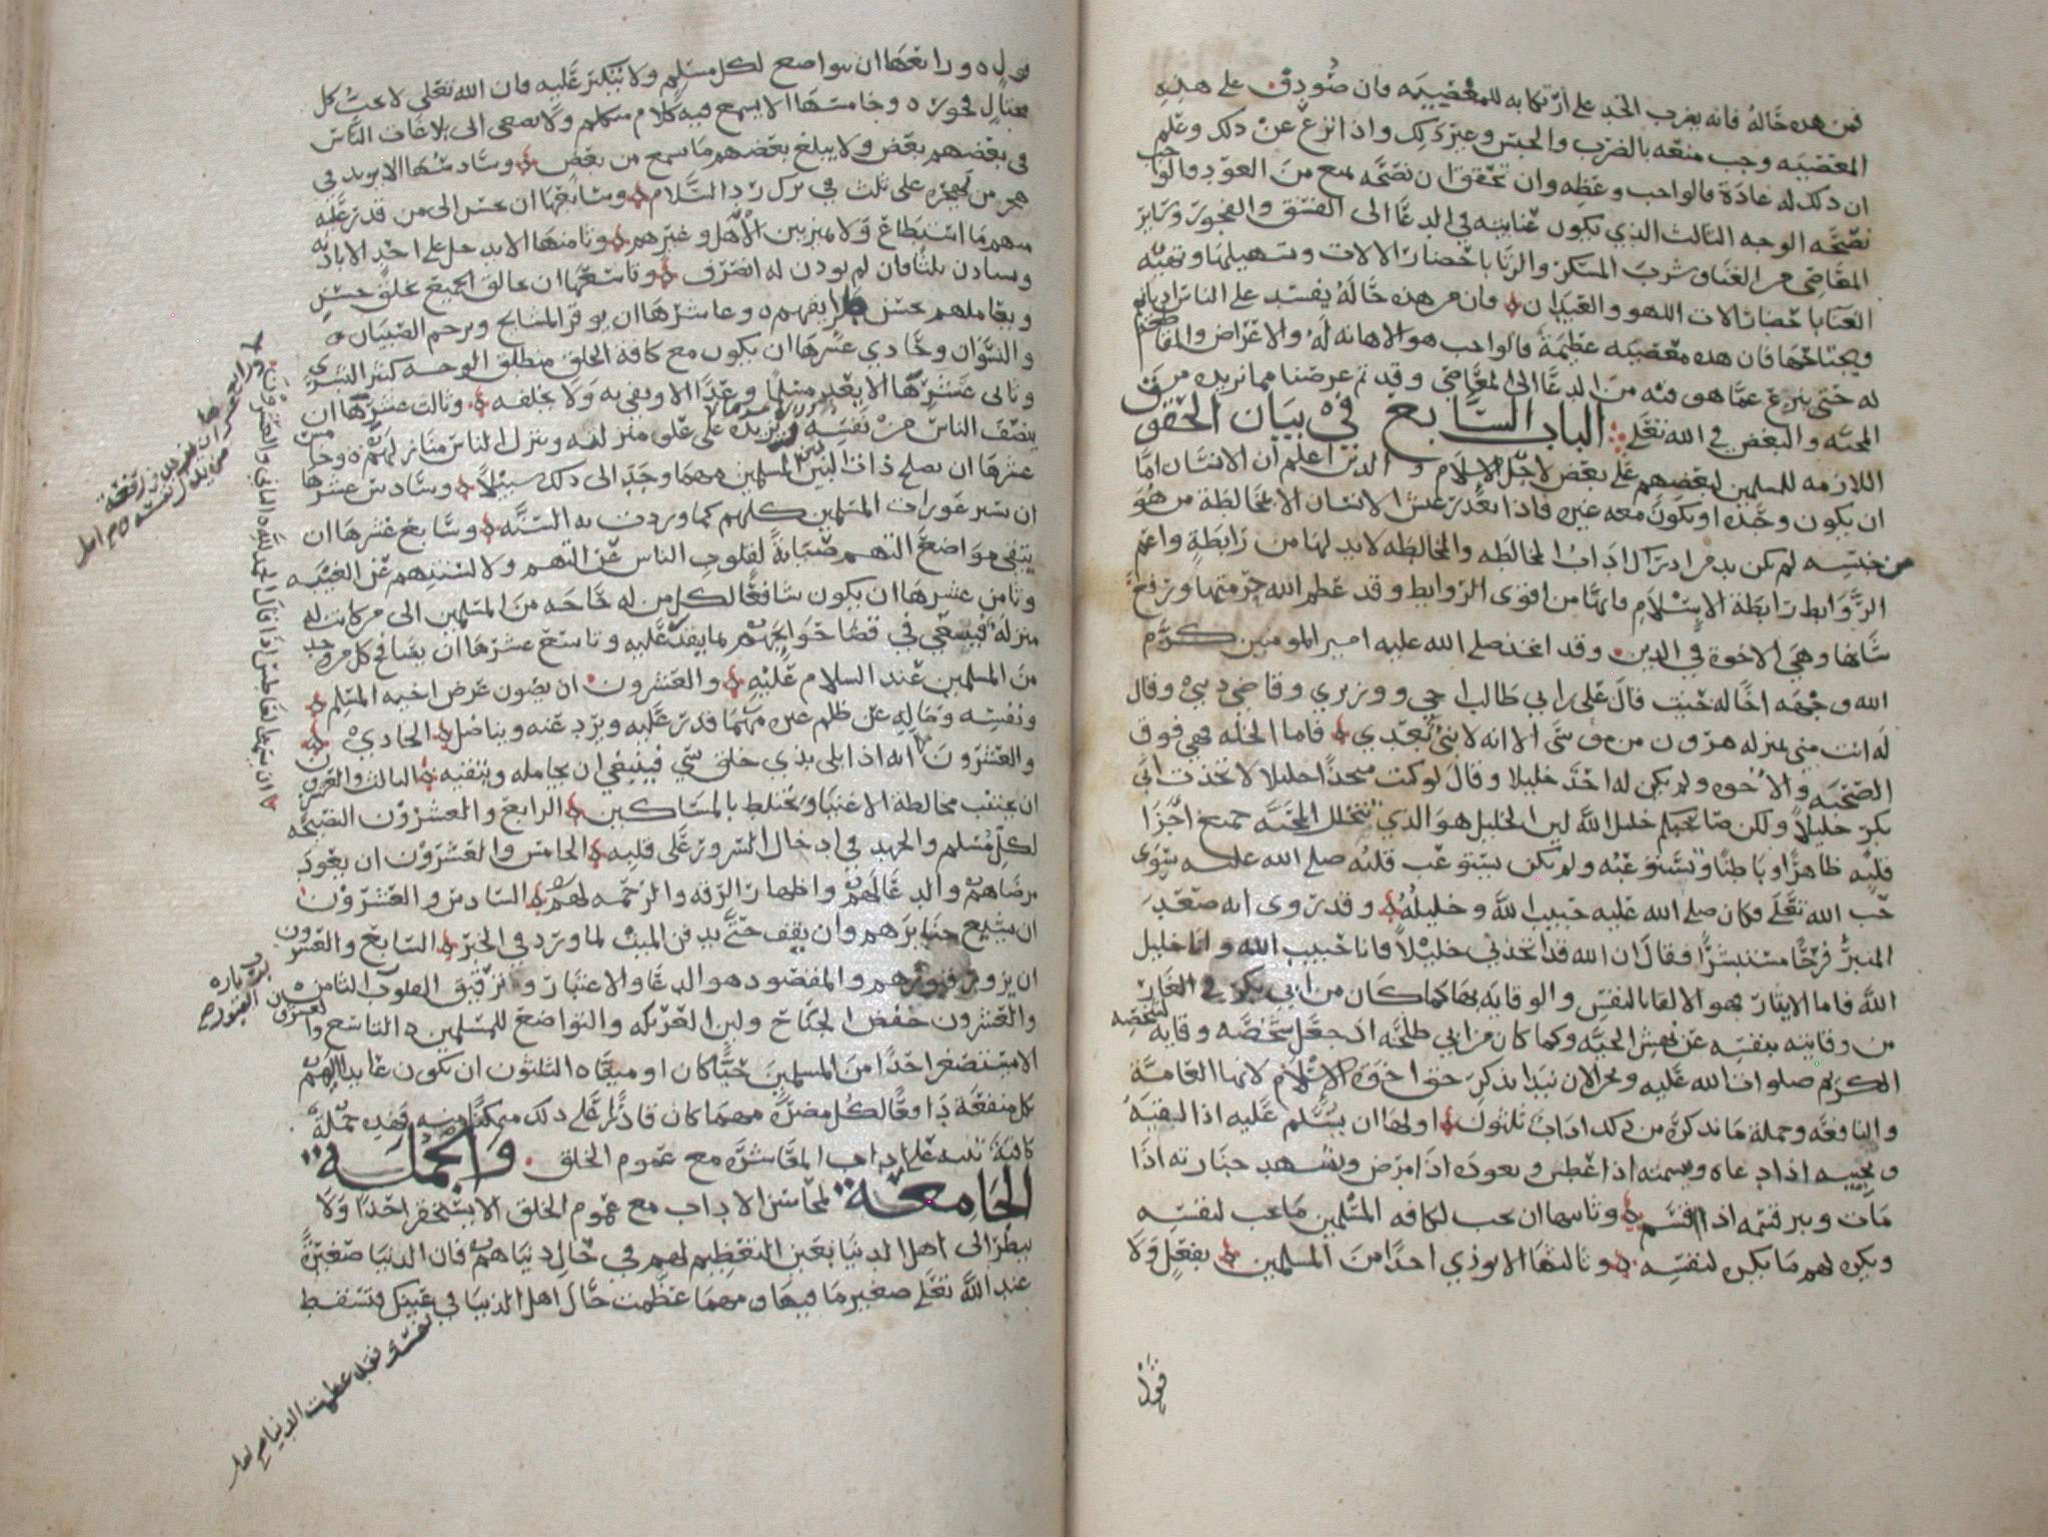 فمن هذه حاله فانه يضرب الحد على ارتكابه للمعصيه فان صودق على هذه
المعصيه وجب منعه بالضرب والحبس وغير ذلك واذا نزع عن ذلك وعلم
ان ذلك له عادة فالواجب وعظه وان تحقق ان نصحه يمنع من العود فالواجب
نصحه الوجه الثالث الذي يكون غنايته في الدعا الى الفسق والفجور وساير
المعاصي من الغنا وشرب المسكر والزنا باحضار الالات وتسهيلها وتقيه
الغنا باحضار الات اللهو والعيدان فان من هذه حاله يفسد على الناس اديانهم
ويجتاحها فان هذه معصيه عظيمة فالواجب هو الاهانه له والاعراض والمقاطعه
له حتى ينزع عما هو فيه من الدعا الى المعاصي وقد تم غرضنا مما نريده من
المحبه والبغض في الله تعلى الباب السابع في بيان الحقوق
اللازمه للمسلمين لبعضهم على بعض لاجل الاسلام والدين اعلم ان الانسان اما
ان يكون وحده او يكون معه غيره فاذا تعذر عيش الانسان الا بمخالطة من هو
من جنسه لم يكن بد من ادراك اداب المخالطه والمخالطه لابد لها من رابطة واعم
الروابط رابطة الاسلام فانها من اقوى الروابط وقد عظم الله حرمتها ورفع
شانها وهي الاخوة في الدين وقد اتخذ صلى الله عليه امير المومنين كرم
الله وجهه اخا له حيث قال علي بن ابي طالب اخي ووزيري وقاضي ديني وقال
له انت مني بمنزله هرون من موسى الا انه لا نبي بعدي فاما الخله فهي فوق
الصحبه والاخوه ولم يكن له احد خليلا وقال لو كنت متخذا خليلا لاتخذت ابا
بكر خليلا ولكن صاحبكم خليل الله لان الخليل هو الذي تتخلل المحبه جميع اجزا
قلبه ظاهرا وباطنا وتستوعبه ولم يكن يستوعب قلبه صلى الله عليه سوى
حب الله تعلى وكان صلى الله عليه حبيب الله وخليله وقد روى انه صعد
المنبر فرحا مستبشرا فقال ان الله قد اتخذني خليلا فانا حبيب الله وانا خليل
الله فاما الايثار فهو الالقا بالنفس والوقايه بها كما كان من ابي بكر في الغار
من وقايته بنفسه عن نهش الحيه وكما كان من ابي طلحه اذ جعل شخصه وقاية لشخصه
الكريم صلوات الله عليه ونحن الان نبدا بذكر حق اخوة الاسلام لانها العامة
والنافعه وجملة ما نذكره من ذلك اداب ثلثون اولها ان يسلم عليه اذا لقيه
ويجيبه اذا دعاه ويسمته اذا عطس ويعوده اذا مرض ويشهد جنازته اذا
مات ويبر قسمه اذا اقسم وثانيها ان يحب لكافه المسلمين ما يحب لنفسه
ويكره لهم ما يكره لنفسه وثالثها الا يوذي احدا من المسلمين بفعل ولا
قول
قول ورابعها ان يتواضع لكل مسلم ولا يتكبر عليه فان الله تعلى لا يحب كل
مختال فخور وخامسها الا يسمع فيه كلام متكلم ولا يصغى الى بلاغات الناس
في بعضهم بعض ولا يبلغ بعضهم ما سمع من بعض وسادسها الا يزيد في
هجر من يهجره على ثلث في ترك رد السلام وسابعها ان يحسن الى من قدر عليه
منهم ما استطاع ولا يميز بين الاهل وغيرهم وثامنها الا يدخل على احد الا باذنه
ويستاذن ثلثا فان لم يوذن له انصرف وتاسعها ان يخالق الجميع بخلق حسن
ويعاملهم بحسن طرايقهم وعاشرها ان يوقر المشايخ ويرحم الصبيان
والنسوان وحادي عشرها ان يكون مع كافة الخلق منطلق الوجه كثير البشرى
وثاني عشرها الا يعد مسلما وعدا الا ويفي به ولا يخلفه وثالث عشرها ان
ينصف الناس من نفسه ولا يزيده على علو منزلته وينزل الناس منازلهم وخامس
عشرها ان يصلح ذات البين بين المسلمين مهما وجد الى ذلك سبيلا وسادس عشرها
ان يستر عورات المسلمين كلهم كما وردت به السنه وسابع عشرها ان
يتقي مواضع التهم صيانة لقلوب الناس عن التهم ولالسنتهم عن الغيبه
وثامن عشرها ان يكون شافعا لكل من له حاجه من المسلمين الى من كانت له
منزلة فيسعى في قضا حوايجهم بما يقدر عليه وتاسع عشرها ان يصافح كل من وجد
من المسلمين عند السلام عليه والعشرون ان يصون عرض اخيه المسلم
ونفسه وماله عن ظلم غيره مهما قدر عليه ويرد عنه ويناضل الحادي
والعشرون انه اذا بلى بذي خلق سي فينبغي ان يجامله ويتقيه الثالث والعشرون
ان يجتنب مخالطة الاغنيا ويختلط بالمساكين الرابع والعشرون النصيحه
لكل مسلم والجهد في ادخال السرور على قلبه الخامس والعشرون ان يعود
مرضاهم والدعا لهم واظهار الرقه والرحمه لهم السادس والعشرون
ان يشيع جنايزهم وان يقف حتى يدفن الميت لما ورد في الخبر السابع والعشرون
ان يزور قبورهم والمقصود هو الدعا والاعتبار وترقيق القلوب الثامن
والعشرون خفض الجناح ولين العريكه والتواضع للمسلمين التاسع والعشرون
الا يستصغر احدا من المسلمين حيا كان او ميتا الثلثون ان يكون عايدا لهم
بكل منفعة دافعا لكل مضرة مهما كان قادرا على ذلك متمكنا منه فهذه جملة
كافية تنبه على اداب المعاشره مع عموم الخلق والجملة
الجامعة لمحاسن الاداب مع عموم الخلق الا يستحقر احدا ولا
ينظر الى اهل الدنيا بعين التعظيم لهم في حال دنياهم فان الدنيا صغيرة
عند الله تعلى صغير ما فيها ومهما عظمت حال اهل الدنيا في عينك فتسقط